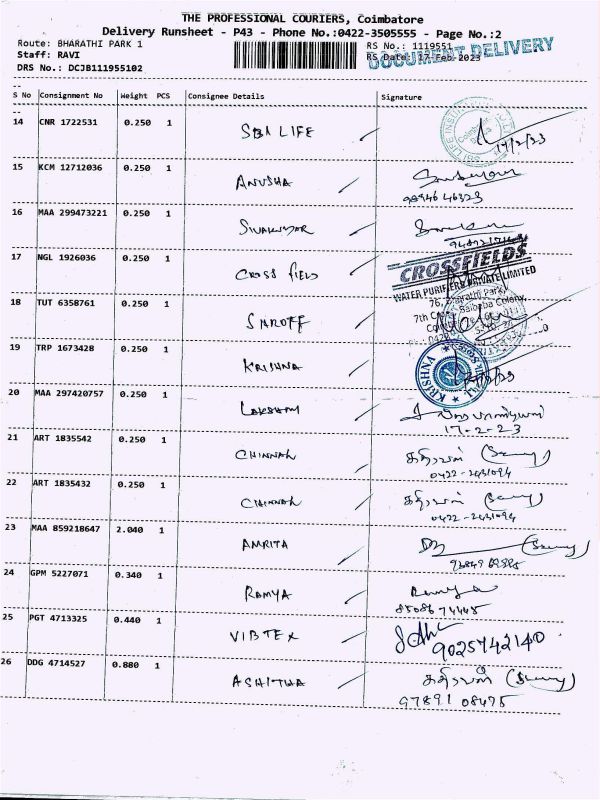 THE PROFESSIONAL COURIERS, Coimbatore
Delivery Runsheet - P43 - Phone No.:0422-3505555 - Page No.:2
Route: BHARATHI PARK 1
RS No.: 1119551
Staff: RAVI
RS Date: 17-Feb-2023
DOCUMENT DELIVERY
DRS No.: DCJB111955102
S No Consignment No Weight PCS Consignee Details Signature
14 CNR 1722531 0.250 1 SBI LIFE
17/2/23
15 KCM 12712036 0.250 1 ANUSHA
98946 46323
16 MAA 299473221 0.250 1 SIVAKUMAR
17 NGL 1926036 0.250 1 CROSS FIELD
CROSSFIELDS
WATER PURIFIERS PRIVATE LIMITED
76, Bharathi Park,
7th Cross, Saibaba Colony,
18 TUT 6358761 0.250 1 SHROFF
19 TRP 1673428 0.250 1 KRISHNA
KRISHNA
20 MAA 297420757 0.250 1 LAKSHMI
17-2-23
21 ART 1835542 0.250 1 CHINNAH
கதிரவன்
0422-2431094
22 ART 1835432 0.250 1 CHINNAH
கதிரவன்
0422-2431094
23 MAA 859218647 2.040 1 AMRITA
24 GPM 5227071 0.340 1 RAMYA
Ramya
8508674465
25 PGT 4713325 0.440 1 VIBTEX
9025742140
26 DDG 4714527 0.880 1 ASHITHA
கதிரவன்
97891 08475